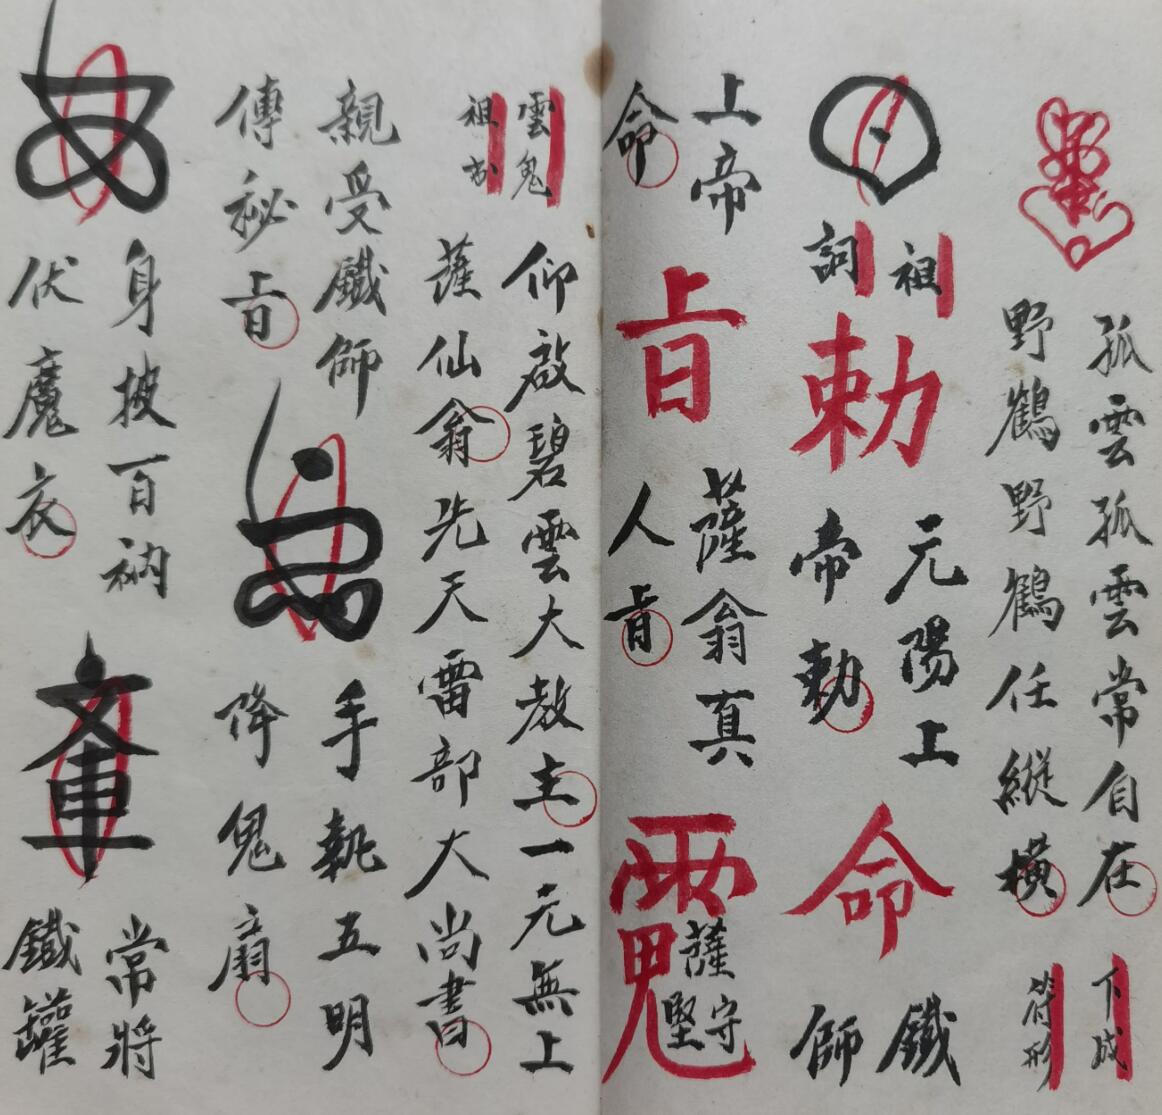 孤雲孤雲常自在
野鶴野鶴任縱橫
下成
符形
祖
詞
勅
元陽上
帝勅
命
鐵
師
上帝
命
旨
薩翁真
人旨
薩守
堅
雲鬼
祖
仰啟碧雲大教主一元無上
薩仙翁先天雷部大尚書
親受鐵師
傳秘旨
手執五明
降鬼扇
身披百衲
伏魔衣
常將
鐵罐